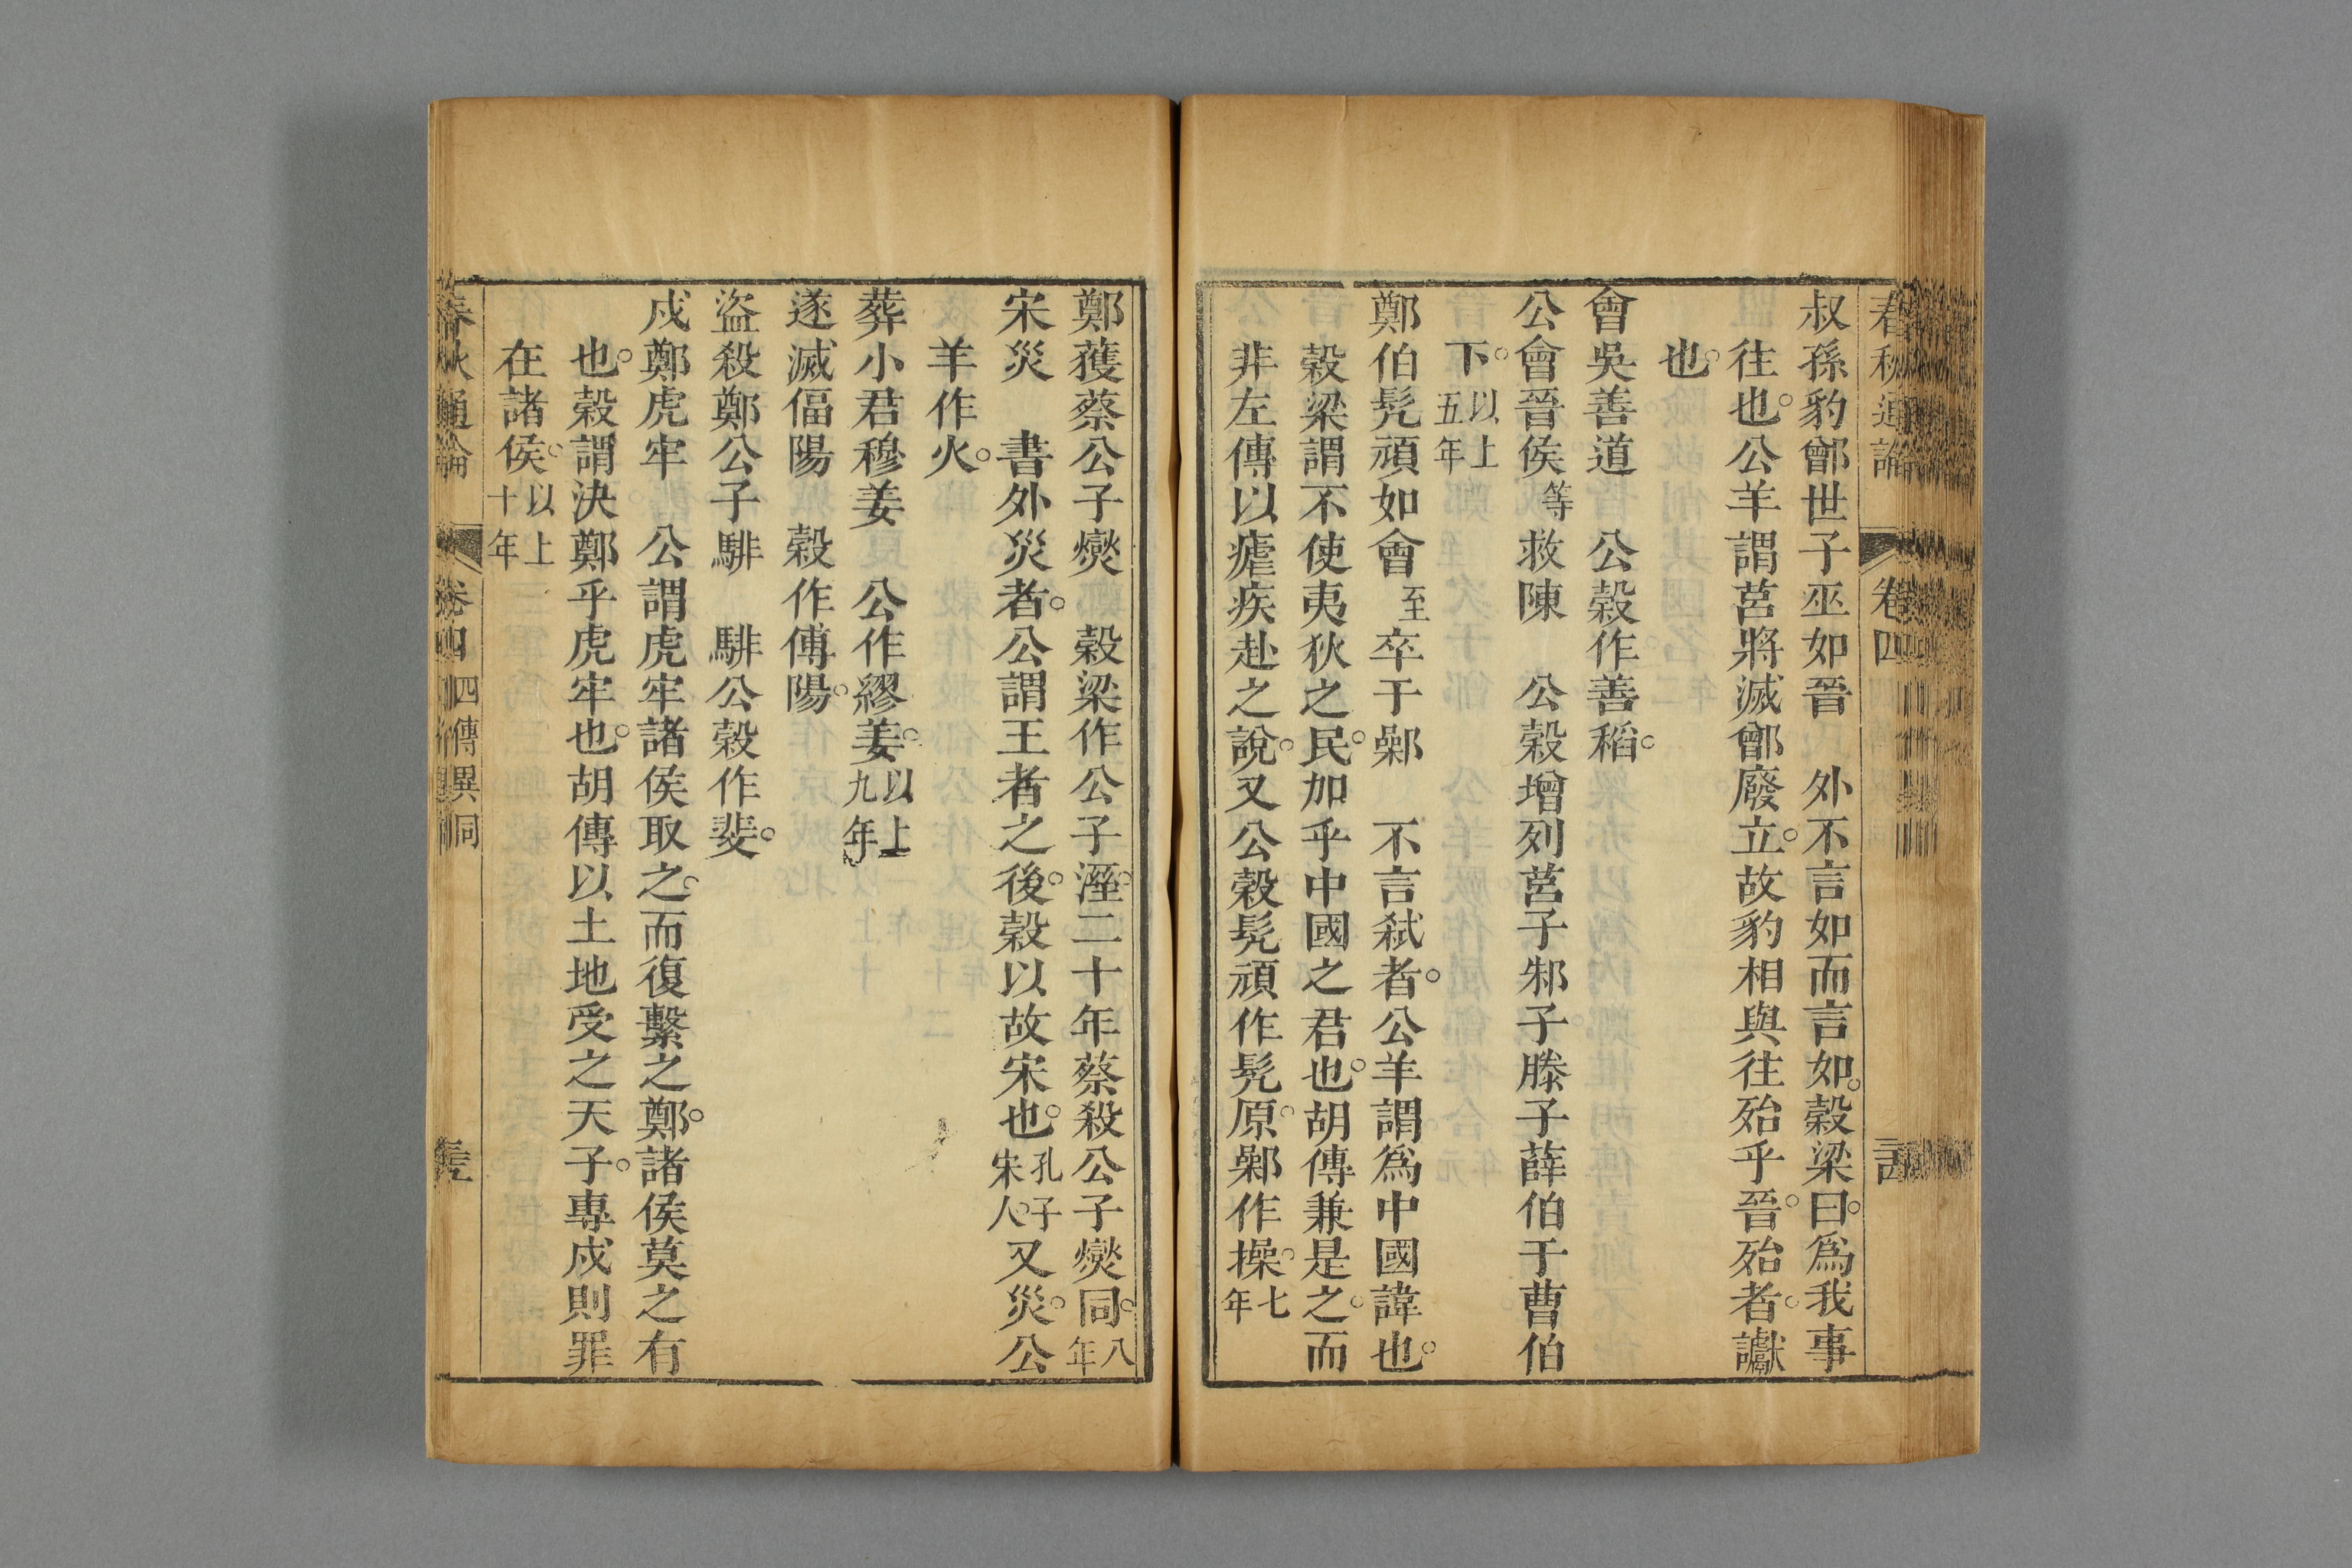 春秋通論 卷四
叔孫豹鄫世子巫如晉 外不言如而言如。穀梁曰。爲我事
往也。公羊謂莒將滅鄫廢立。故豹相與往殆乎。晉殆者。讞
也。
會吳善道 公穀作善稻。
公會晉侯等救陳 公穀增列莒子邾子滕子薛伯于曹伯
下。以上五年
鄭伯髡頑如會至卒于鄵 不言弒者。公羊謂爲中國諱也。
穀梁謂不使夷狄之民。加乎中國之君也。胡傳兼是之。而
非左傳以瘧疾赴之說。又公穀髡頑作髡原。鄵作操。七年
鄭獲蔡公子燮 穀梁作公子溼。二十年蔡殺公子燮同。八年
宋災 書外災者。公謂王者之後。穀以故宋也。孔子宋人。又災。公
羊作火。
葬小君穆姜 公作繆姜。以上九年
遂滅偪陽 穀作傅陽。
盜殺鄭公子騑 騑公穀作斐。
戍鄭虎牢 公謂虎牢諸侯取之。而復繫之鄭。諸侯莫之有
也。穀謂決鄭乎虎牢也。胡傳以土地受之天子。專戍則罪
在諸侯。以上十年
春秋通論 卷四 四傳異同